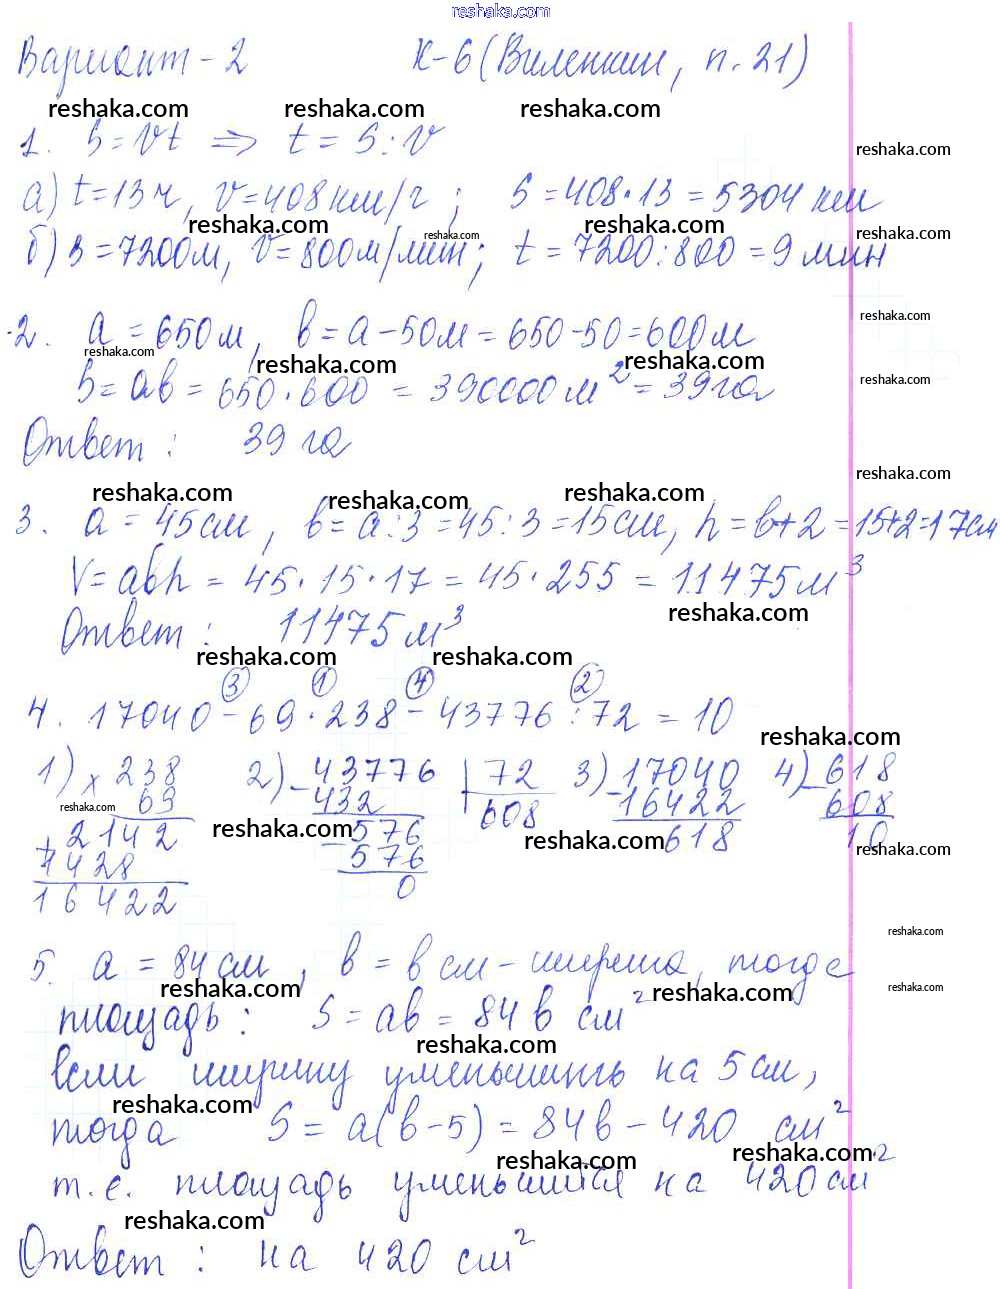 reshaka.com
Вариант - 2 К-6 (Виленкин, п. 21)
reshaka.com reshaka.com reshaka.com
1. S = Vt ⇒ t = S : V
reshaka.com
а) t = 13 ч, V = 408 км/ч ; S = 408 · 13 = 5304 км
reshaka.com reshaka.com reshaka.com reshaka.com
б) S = 7200 м, V = 800 м/мин ; t = 7200 : 800 = 9 мин
reshaka.com
2. a = 650 м, b = a - 50 м = 650 - 50 = 600 м
reshaka.com reshaka.com reshaka.com reshaka.com
S = ab = 650 · 600 = 390000 м² = 39 га
Ответ : 39 га
reshaka.com
reshaka.com reshaka.com reshaka.com
3. a = 45 см , b = a : 3 = 45 : 3 = 15 см, h = b + 2 = 15 + 2 = 17 см
V = abh = 45 · 15 · 17 = 45 · 255 = 11475 м³
reshaka.com
Ответ : 11475 м³
reshaka.com reshaka.com
③ ① ④ ②
4. 17040 - 69 · 238 - 43776 : 72 = 10
reshaka.com
reshaka.com
1) × 238 2) - 43776 | 72 3) - 17040 4) - 618
69 432 608 16422 608
reshaka.com reshaka.com reshaka.com reshaka.com
+ 2142 - 576 618 10
1428 576
16422 0
reshaka.com
5. a = 84 см , b = b см - ширина, тогда
reshaka.com reshaka.com reshaka.com
площадь : S = ab = 84 b см²
reshaka.com
если ширину уменьшить на 5 см,
reshaka.com
тогда S = a(b - 5) = 84b - 420 см²
reshaka.com reshaka.com
т.е. площадь уменьшится на 420 см²
reshaka.com
Ответ : на 420 см²